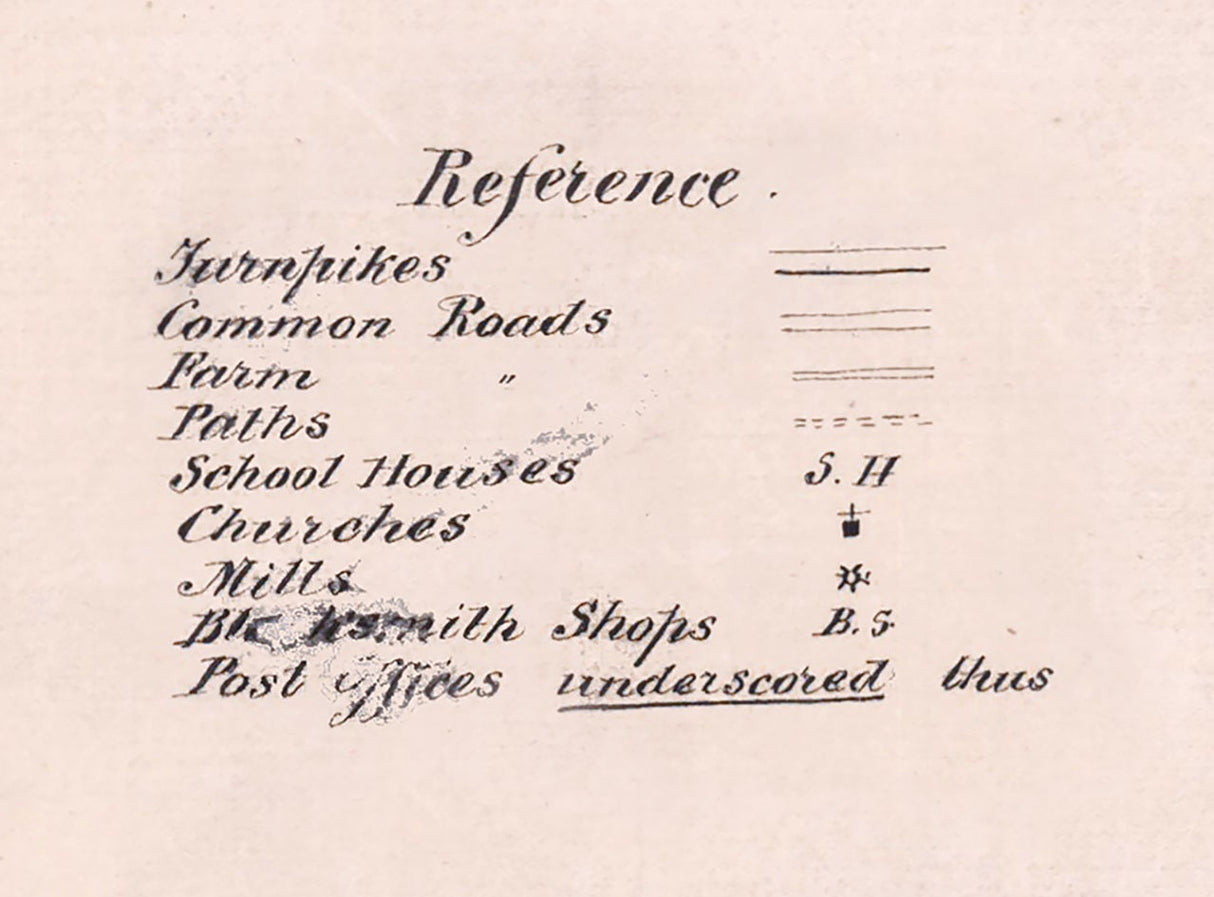 Reference.
Turnpikes
Common Roads
Farm "
Paths
School Houses S. H
Churches
Mills
Shops B. S.
Post Offices underscored thus